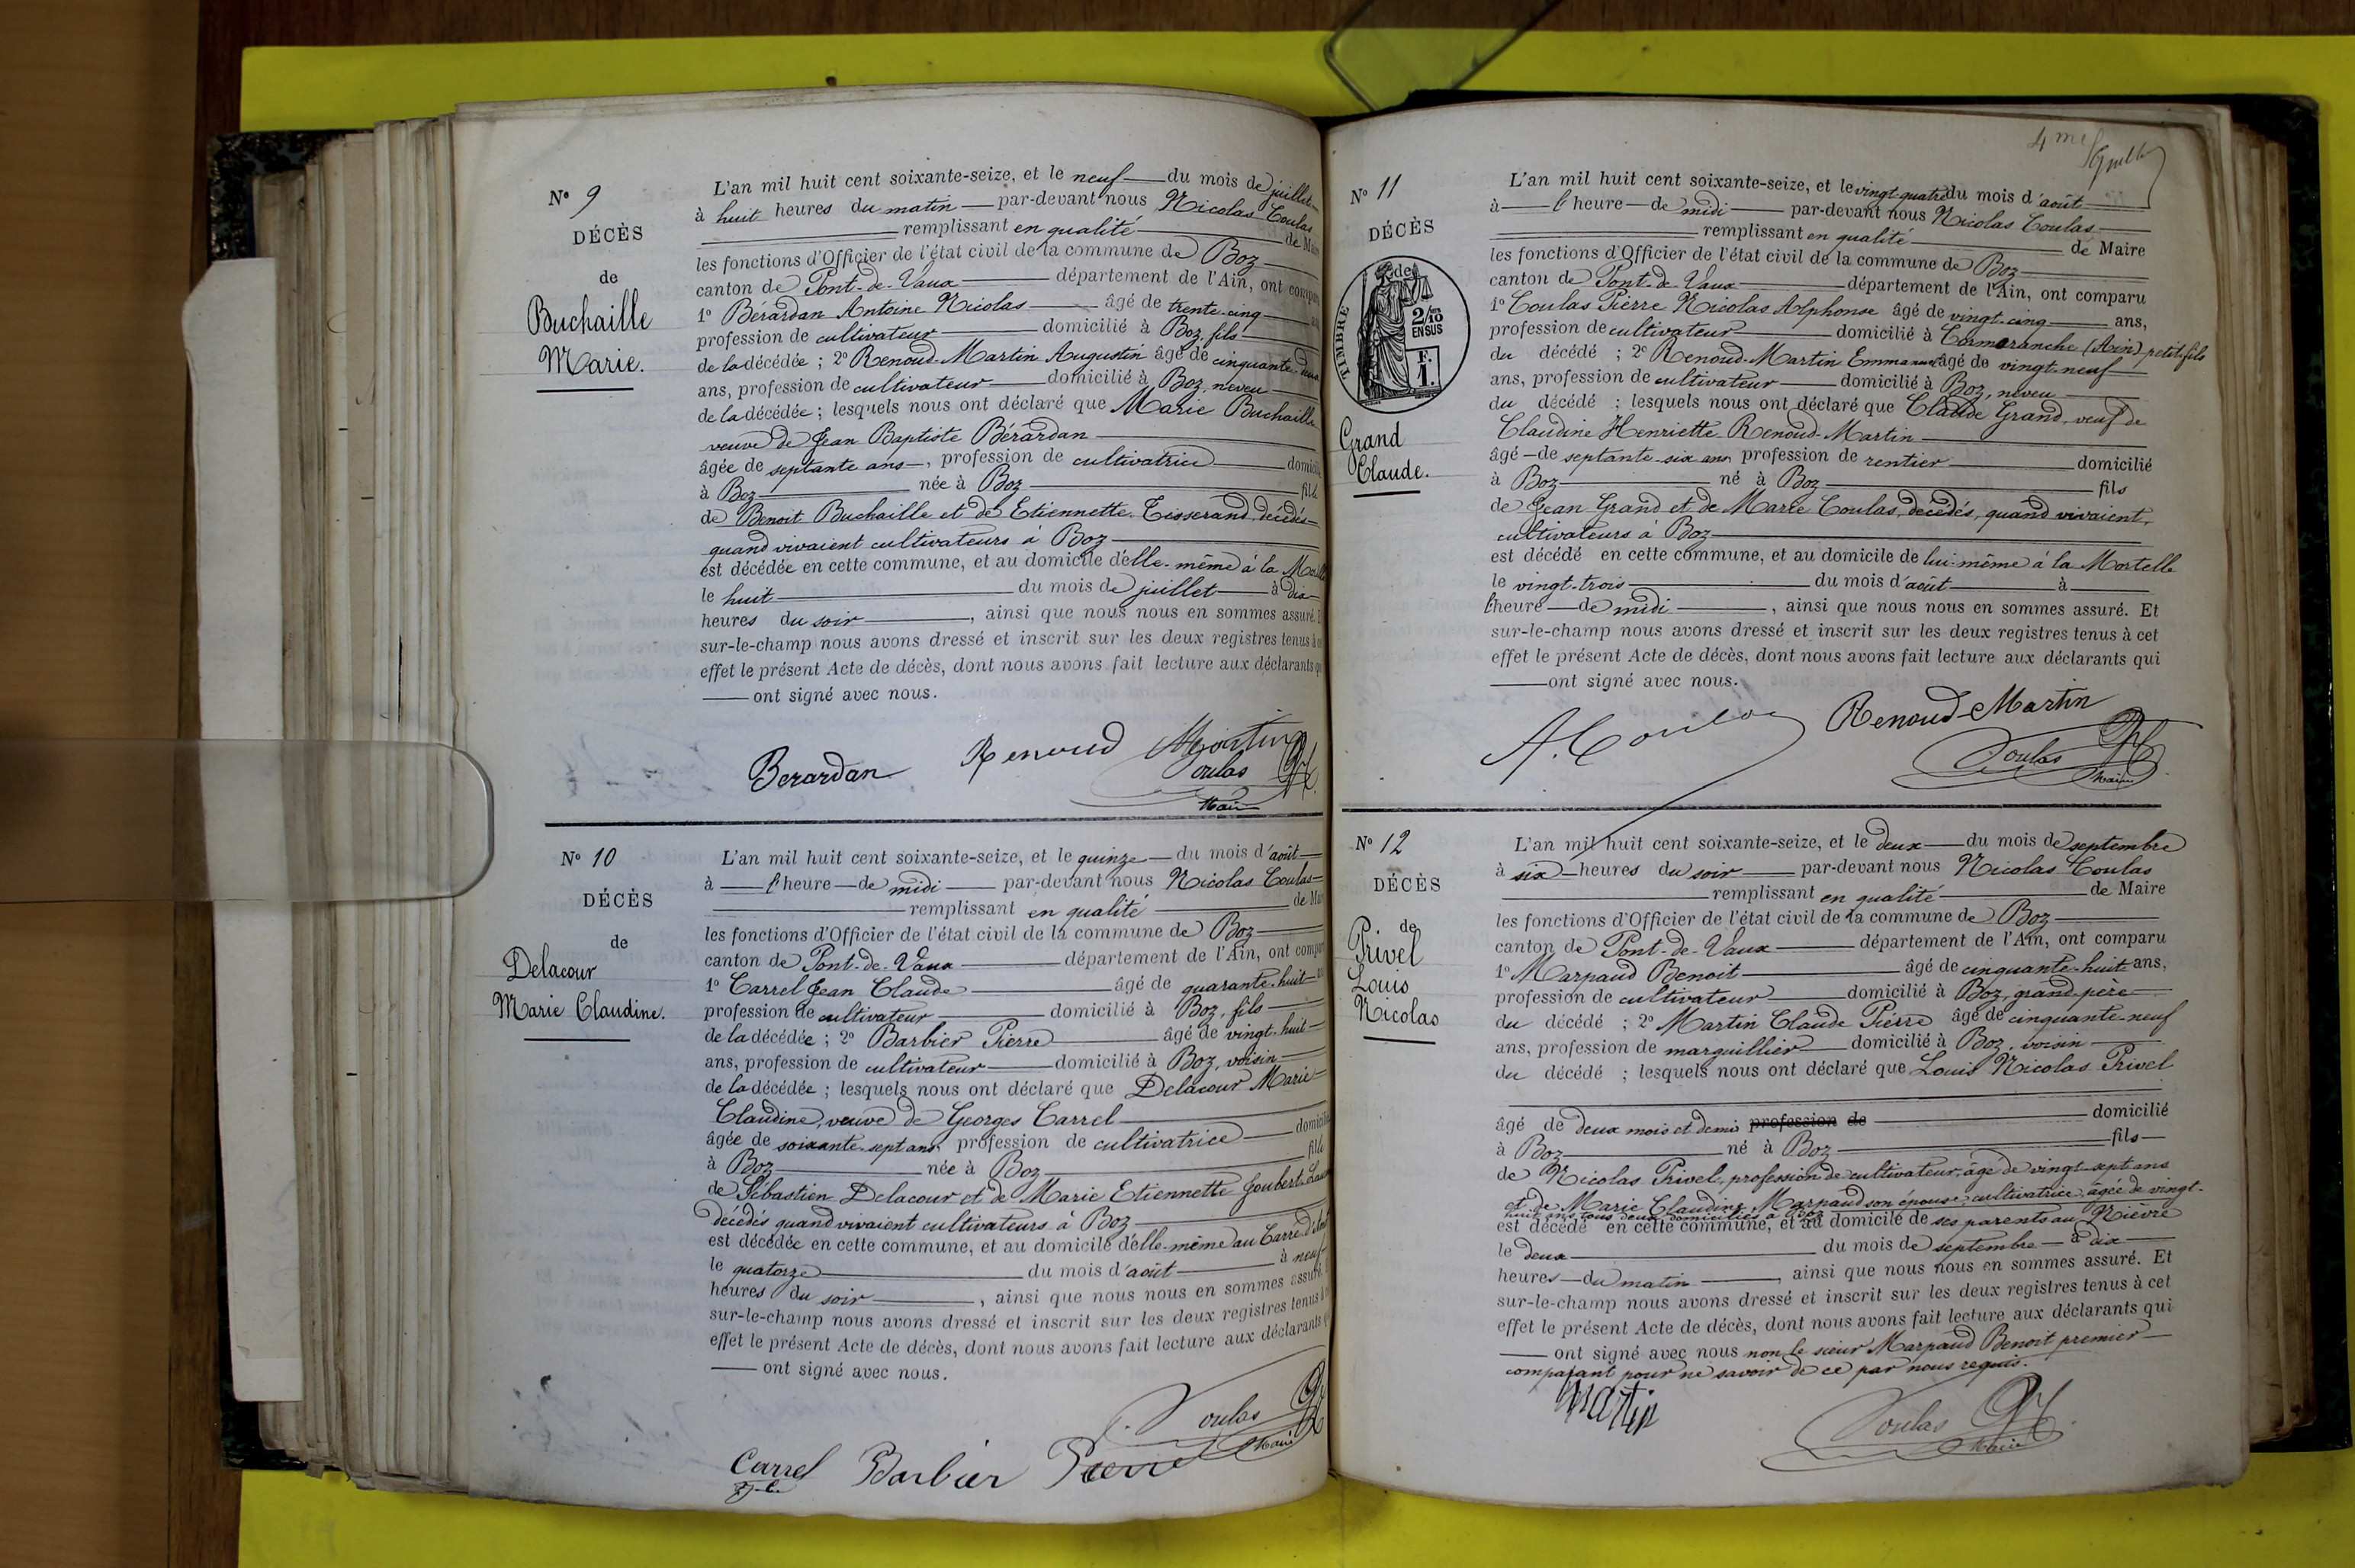 N° 9
DÉCÈS
de
Buchaille
Marie.
L'an mil huit cent soixante-seize, et le neuf du mois de juillet
à huit heures du matin par-devant nous Nicolas Coulas
remplissant en qualité de
les fonctions d'Officier de l'état civil de la commune de Boz
canton de Pont-de-Vaux département de l'Ain, ont
1° Bérardan Antoine Nicolas âgé de trente-cinq
profession de cultivateur domicilié à Boz, fils
de la décédée ; 2° Renoud-Martin Augustin âgé de cinquante-
ans, profession de cultivateur domicilié à Boz, neveu
de la décédée ; lesquels nous ont déclaré que Marie Buchaille
veuve de Jean Baptiste Bérardan
âgée de septante ans, profession de cultivatrice
à Boz née à Boz fille
de Benoit Buchaille et de Etiennette Tisserand, décédés
quand vivaient cultivateurs à Boz
est décédée en cette commune, et au domicile d'elle-même à la
le huit du mois de juillet à dix
heures du soir, ainsi que nous nous en sommes assuré.
sur-le-champ nous avons dressé et inscrit sur les deux registres tenus à
effet le présent Acte de décès, dont nous avons fait lecture aux déclarants
ont signé avec nous.
Berardan Renoud Martin
Coulas
Maire
N° 10
DÉCÈS
de
Delacour
Marie Claudine.
L'an mil huit cent soixante-seize, et le quinze du mois d'août
à l'heure de midi par-devant nous Nicolas Coulas
remplissant en qualité de
les fonctions d'Officier de l'état civil de la commune de Boz
canton de Pont-de-Vaux département de l'Ain, ont
1° Carrel Jean Claude âgé de quarante-huit
profession de cultivateur domicilié à Boz, fils
de la décédée ; 2° Barbier Pierre âgé de vingt-huit
ans, profession de cultivateur domicilié à Boz, voisin
de la décédée ; lesquels nous ont déclaré que Delacour Marie
Claudine, veuve de Georges Carrel
âgée de soixante-sept ans, profession de cultivatrice
à Boz née à Boz fille
de Sébastien Delacour et de Marie Etiennette Joubert
décédés quand vivaient cultivateurs à Boz
est décédée en cette commune, et au domicile d'elle-même au
le quatorze du mois d'août à neuf
heures du soir, ainsi que nous nous en sommes assuré.
sur-le-champ nous avons dressé et inscrit sur les deux registres tenus
effet le présent Acte de décès, dont nous avons fait lecture aux déclarants
ont signé avec nous.
Coulas
Maire
Carrel Barbier Pierre
J-C.
4me
N° 11
DÉCÈS
de
TIMBRE
2/10
EN SUS
F.
1.
Grand
Claude.
L'an mil huit cent soixante-seize, et le vingt-quatre du mois d'août
à l'heure de midi par-devant nous Nicolas Coulas
remplissant en qualité de Maire
les fonctions d'Officier de l'état civil de la commune de Boz
canton de Pont-de-Vaux département de l'Ain, ont comparu
1° Coulas Pierre Nicolas Alphonse âgé de vingt-cinq ans,
profession de cultivateur domicilié à Cormoranche (Ain) petit-fils
du décédé ; 2° Renoud-Martin Emmanuel âgé de vingt-neuf
ans, profession de cultivateur domicilié à Boz, neveu
du décédé ; lesquels nous ont déclaré que Claude Grand, veuf de
Claudine Henriette Renoud-Martin
âgé de septante-six ans profession de rentier domicilié
à Boz né à Boz fils
de Jean Grand et de Marie Coulas, décédés, quand vivaient,
cultivateurs à Boz
est décédé en cette commune, et au domicile de lui-même à la Mortelle
le vingt-trois du mois d'août à
l'heure de midi, ainsi que nous nous en sommes assuré. Et
sur-le-champ nous avons dressé et inscrit sur les deux registres tenus à cet
effet le présent Acte de décès, dont nous avons fait lecture aux déclarants qui
ont signé avec nous.
A. Coulas Renoud-Martin
Coulas
Maire
N° 12
DÉCÈS
de
Privel
Louis
Nicolas
L'an mil huit cent soixante-seize, et le deux du mois de septembre
à six heures du soir par-devant nous Nicolas Coulas
remplissant en qualité de Maire
les fonctions d'Officier de l'état civil de la commune de Boz
canton de Pont-de-Vaux département de l'Ain, ont comparu
1° Marpaud Benoit âgé de cinquante-huit ans,
profession de cultivateur domicilié à Boz, grand-père
du décédé ; 2° Martin Claude Pierre âgé de cinquante-neuf
ans, profession de marguillier domicilié à Boz, voisin
du décédé ; lesquels nous ont déclaré que Louis Nicolas Privel
âgé de deux mois et demis profession de domicilié
à Boz né à Boz fils
de Nicolas Privel, profession de cultivateur, âgé de vingt-sept ans
et de Marie Claudine Marpaud son épouse, cultivatrice, âgée de vingt-
huit ans tous deux domiciliés à Boz
est décédé en cette commune, et au domicile de ses parents au Nièvre
le deux du mois de septembre à dix
heures du matin, ainsi que nous nous en sommes assuré. Et
sur-le-champ nous avons dressé et inscrit sur les deux registres tenus à cet
effet le présent Acte de décès, dont nous avons fait lecture aux déclarants qui
ont signé avec nous non le sieur Marpaud Benoit premier
comparant pour ne savoir de ce par nous requis.
Martin
Coulas
Maire